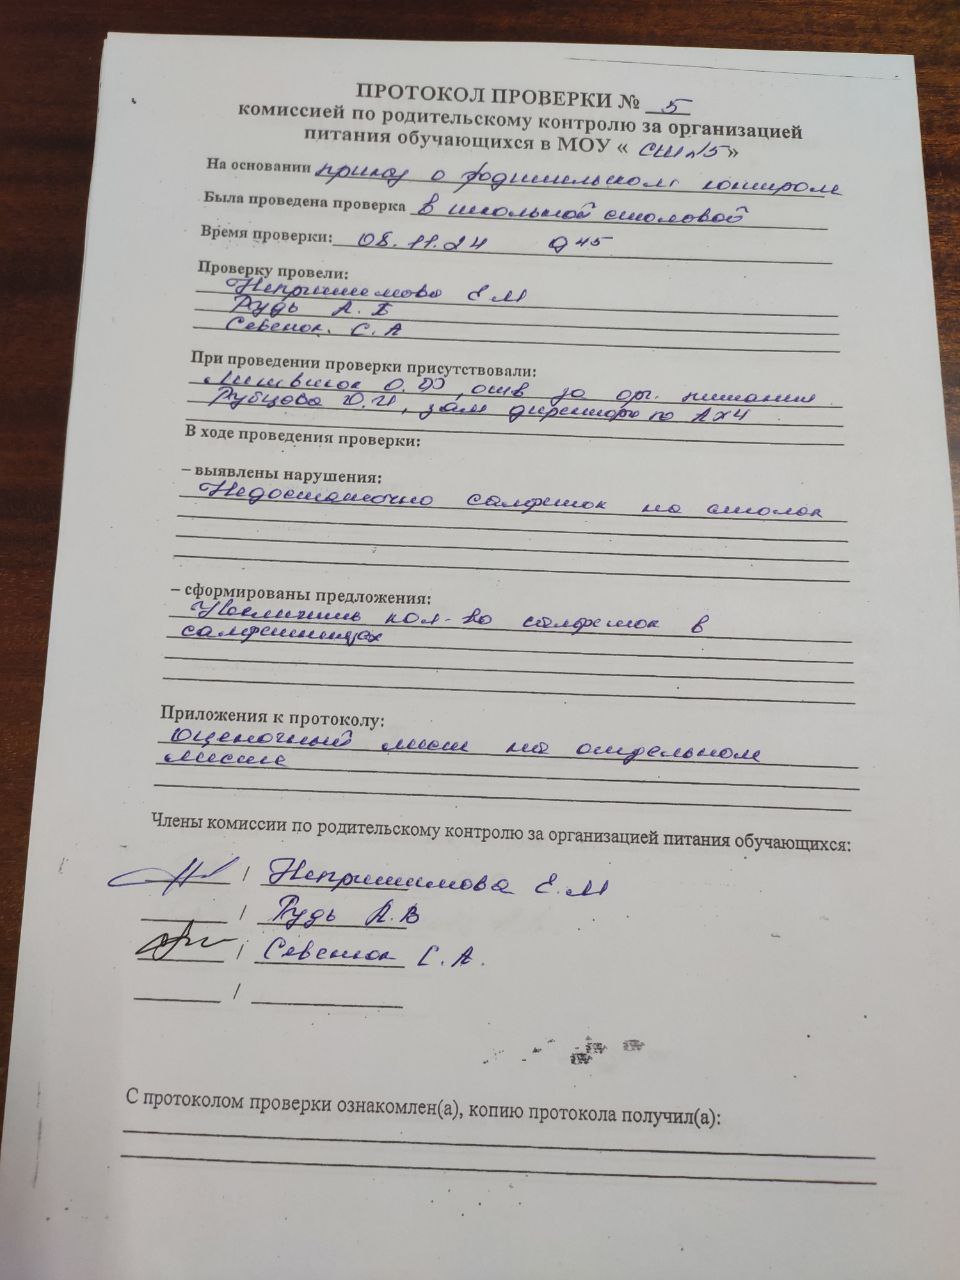 ПРОТОКОЛ ПРОВЕРКИ № 5
комиссией по родительскому контролю за организацией
питания обучающихся в МОУ « СШ №5»
На основании приказ о родительском контроле
Была проведена проверка в школьной столовой
Время проверки: 08.11.24 9 45
Проверку провели:
Непришимова Е.М
Рудь А.В
Севенюк. С.А
При проведении проверки присутствовали:
О.Ф, отв за орг. питания
Рубцова Ю.И, зам директора по АХЧ
В ходе проведения проверки:
– выявлены нарушения:
Недостаточно салфеток на столах
– сформированы предложения:
Увеличить кол-во салфеток в
салфетницах
Приложения к протоколу:
Оценочный лист на отдельном
листе
Члены комиссии по родительскому контролю за организацией питания обучающихся:
/ Непришимова Е.М
/ Рудь А.В
/ Севенюк С.А.
/
С протоколом проверки ознакомлен(а), копию протокола получил(а):